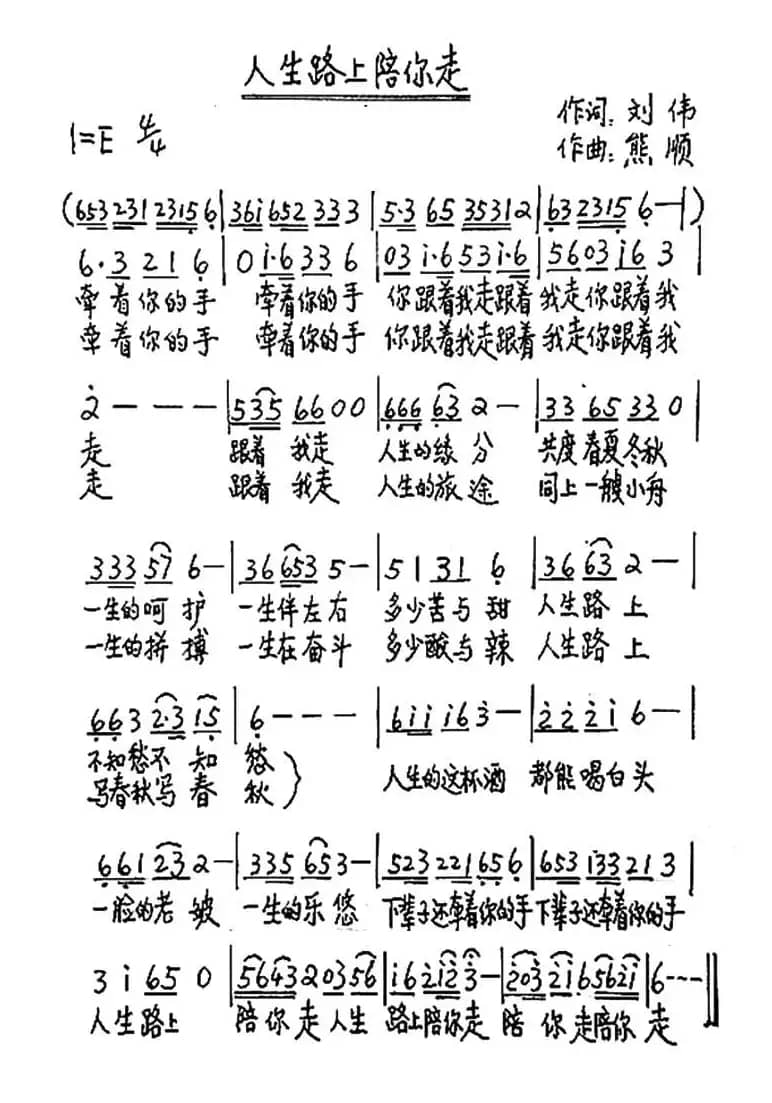 人生路上陪你走
作词:刘伟
1=E 4/4
作曲:熊顺
(653 231 2315 6|36i 652 333|5·3 65 35312|63 2315 6—|)
6·3 21 6|0 i·6 33 6|03 i·6 53 i·6|5603 i6 3|
牵着你的手 牵着你的手 你跟着我走跟着 我走你跟着我
牵着你的手 牵着你的手 你跟着我走跟着 我走你跟着我
2̇ — — —|535 6600|666 63 2—|33 65 33 0|
走 跟着 我走 人生的缘分 共度春夏冬秋
走 跟着 我走 人生的旅途 同上一艘小舟
333 57 6—|36 653 5—|51 31 6|36 63 2—|
一生的呵护 一生伴左右 多少苦与甜 人生路上
一生的拼搏 一生在奋斗 多少酸与辣 人生路上
663 2·3 15|6 — — —|6iii63̇—|2̇2̇2̇i 6—|
不知愁不知 愁
写春秋写春 秋} 人生的这杯酒 都能喝白头
661 23 2—|335 65 3—|523 221 65 6|653 133 21 3|
一脸的老皱 一生的乐悠 下辈子还牵着你的手 下辈子还牵着你的手
3 i 65 0|5643 2 03 56|i6 2̇i2̇ 3̇—|2̇03̇ 2̇i 65621|6 — — —‖
人生路上 陪你走人生 路上陪你走 陪 你走陪你走